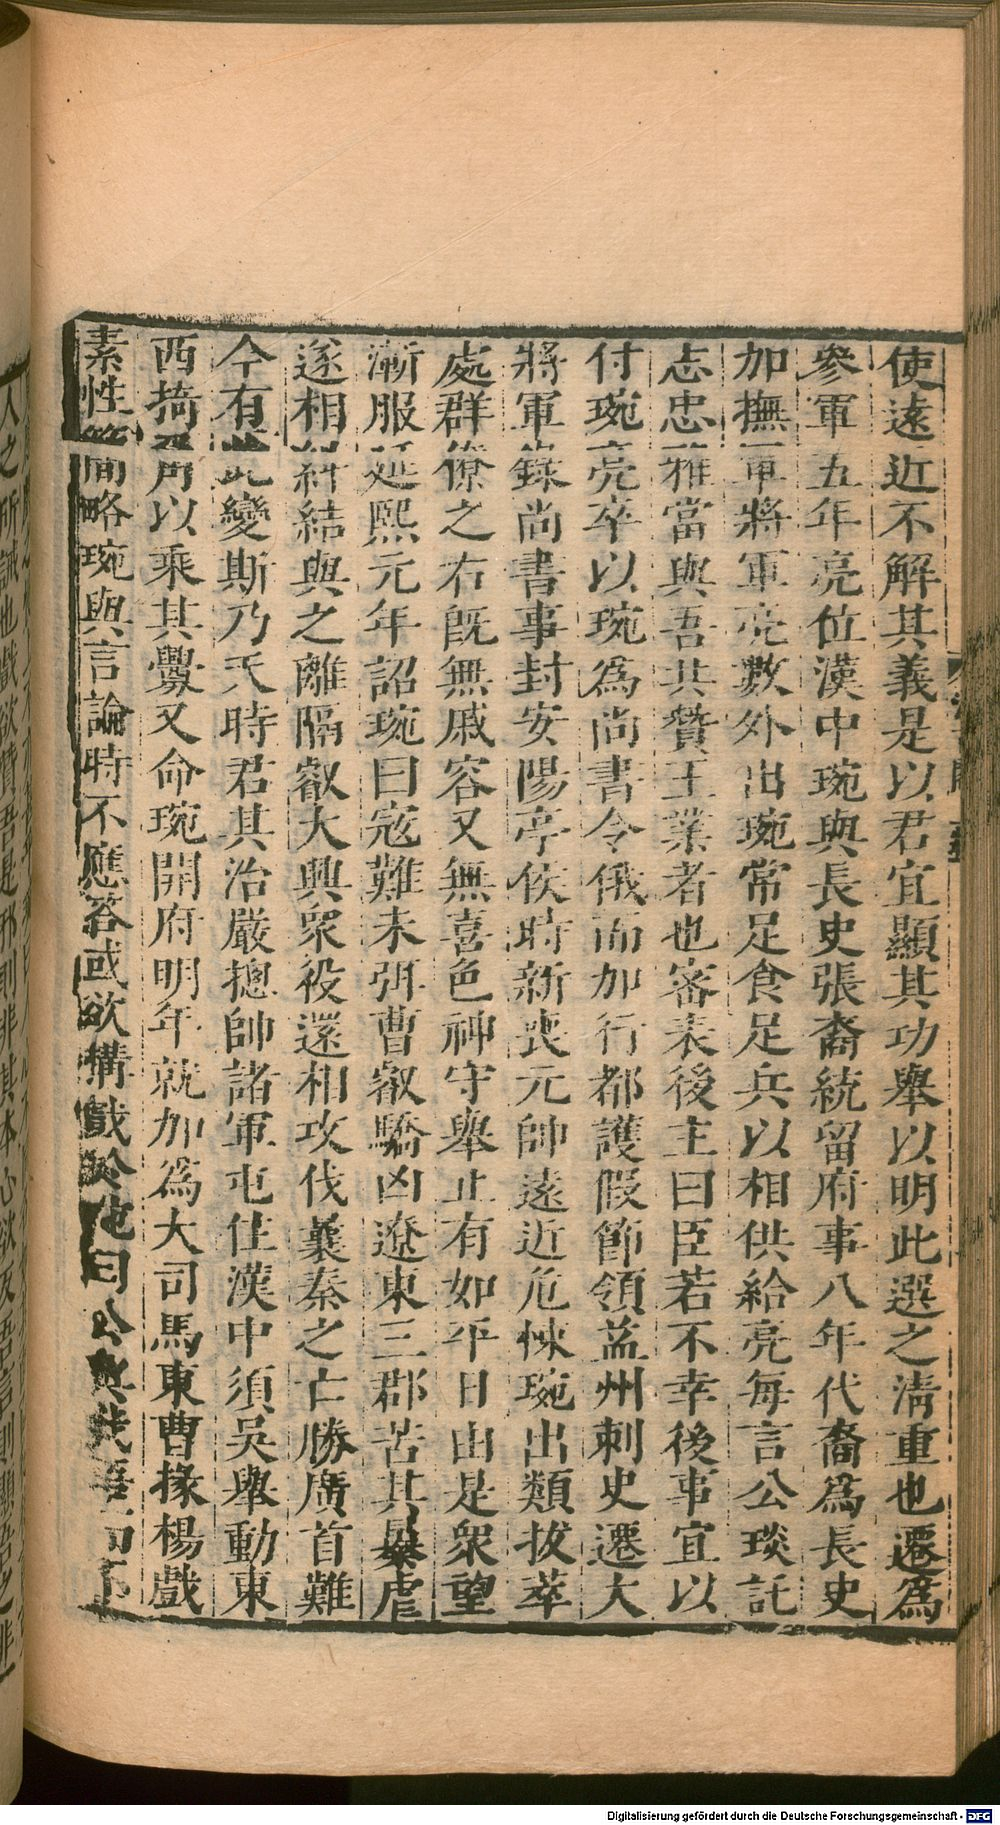 使遠近不解其義是以君宜顯其功舉以明此選之清重也遷為
參軍五年亮位漢中琬與長史張裔統留府事八年代裔為長史
加撫軍將軍亮數外出琬常足食足兵以相供給亮每言公琰託
志忠雅當與吾共贊王業者也密表後主曰臣若不幸後事宜以
付琬亮卒以琬為尚書令俄而加行都護假節領益州刺史遷大
將軍錄尚書事封安陽亭侯時新喪元帥遠近危悚琬出類拔萃
處群僚之右既無戚容又無喜色神守舉止有如平日由是眾望
漸服延熙元年詔琬曰寇難未弭曹叡驕凶遼東三郡苦其暴虐
遂相糾結與之離隔叡大興眾役還相攻伐曩秦之亡勝廣首難
今有此變斯乃天時君其治嚴摠帥諸軍屯住漢中須吳舉動東
西掎角以乘其釁又命琬開府明年就加為大司馬東曹掾楊戲
素性簡略琬與言論時不應答或欲搆戲於琬曰公與戲語而不
Digitalisierung gefördert durch die Deutsche Forschungsgemeinschaft - DFG